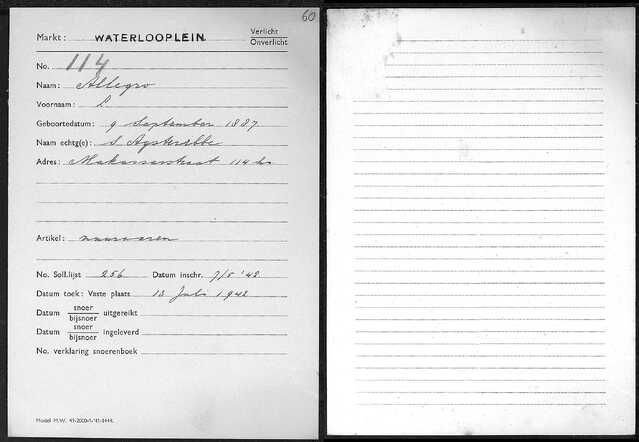 60
Markt: WATERLOOPLEIN Verlicht
Onverlicht
No. 114
Naam: Allegro
Voornaam: L.
Geboortedatum: 9 September 1887
Naam echtg(e): S Agsteribbe
Adres: Makassarstraat 114 hs
Artikel:
No. Soll.lijst 256 Datum inschr. 7/5 '42
Datum toek: Vaste plaats 13 Juli 1942
Datum snoer
bijsnoer uitgereikt
Datum snoer
bijsnoer ingeleverd
No. verklaring snoerenboek
Model M.W. 41-2000-1-'41-1444.